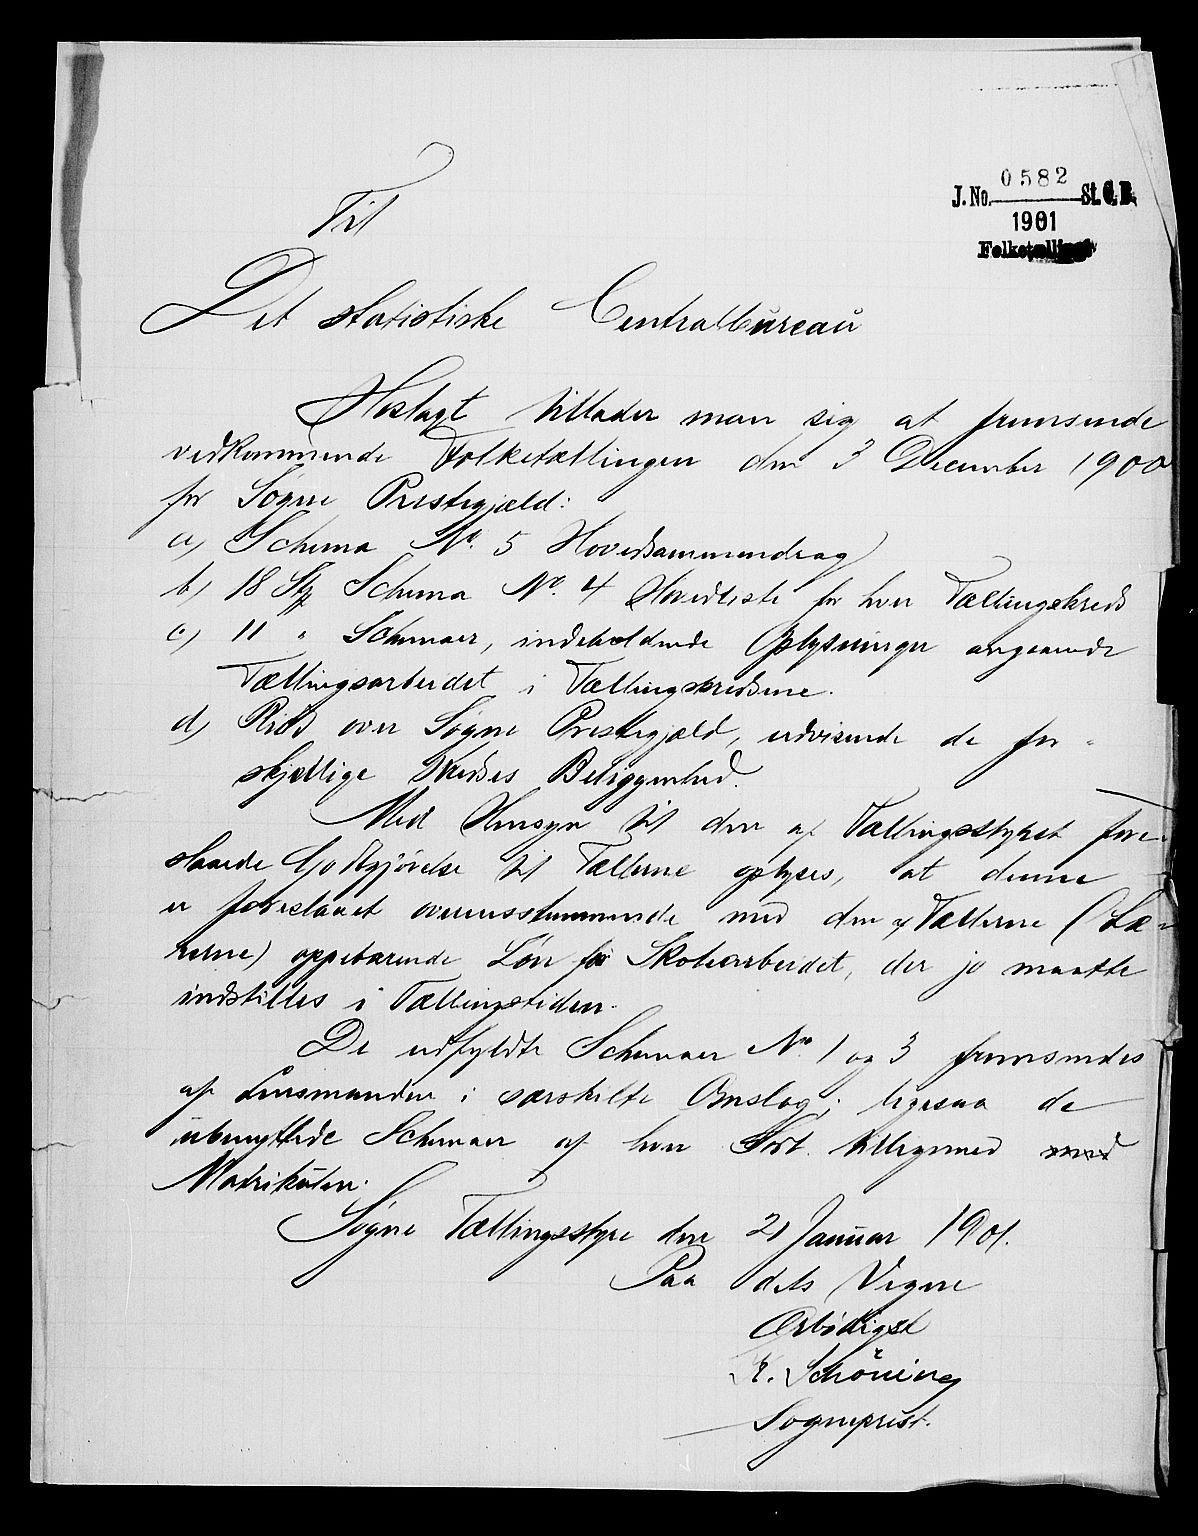 0582
J. No. St. C. B.
1901
Folketællingen
Til
Det statistiske Centralbureau
Hoslagt tillader man sig at fremsende
vedkommende Folketællingen den 3 December 1900
for Søgne Prestegjæld:
a) Schema No. 5 Hovedsammendrag
b) 18 Stk Schema No. 4 Hovedliste for hver Tællingskreds
c) 11 " Schemaer, indeholdende Oplysninger angaaende
Tællingsarbeidet i Tællingskredsene.
d) Rids over Søgne Prestegjæld, udvisende de for-
skjellige Kredses Beliggenhed.
Med Hensyn til den af Tællingsstyret fore-
slaaede Godtgjørelse til Tællerne oplyses, at denne
er foreslaaet overensstemmende med den af Tællerne (Læ-
rerne) oppebærende Løn for Skolearbeidet, der jo maatte
indstilles i Tællingstiden.
De udfyldte Schemaer No. 1 og 3 fremsendes
af Lensmanden i særskilte Omslag; ligesaa de
ubenyttede Schemaer af hver Sort tilligemed med
Matrikulen.
Søgne Tællingsstyre den 21 Januar 1901.
Paa dets Vegne
Ærbødigst
K. Schöning
Sogneprest.